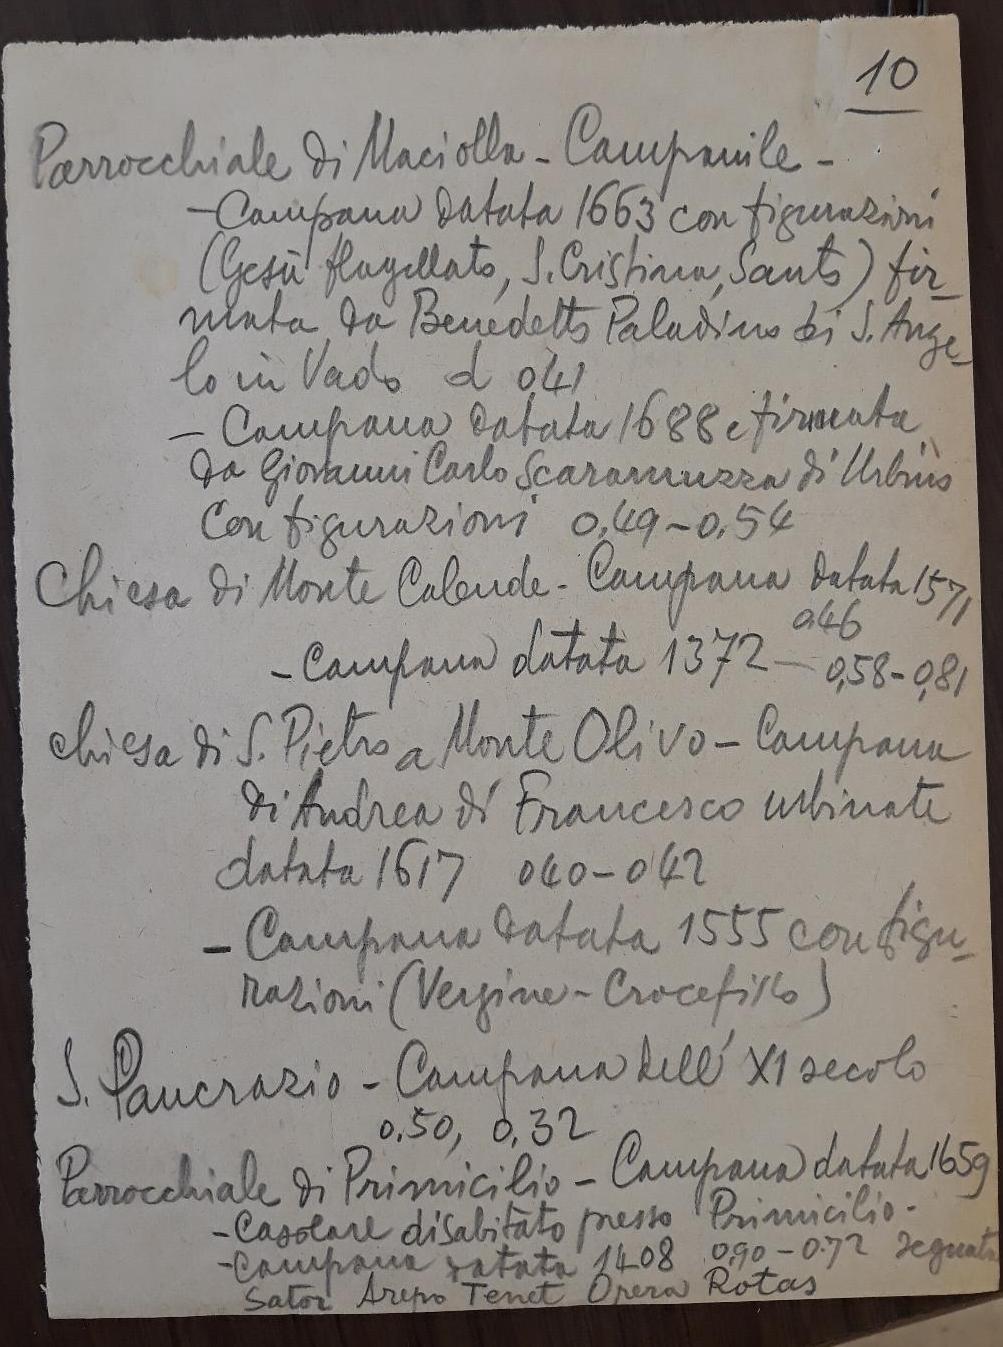 10
Parrocchiale di Maciolla - Campanile -
- Campana datata 1663 con figurazioni
(Gesù flagellato, S. Cristina, Santo) fir-
mata da Benedetto Paladino di S. Ange-
lo in Vado d 041
- Campana datata 1688 e firmata
da Giovanni Carlo Scaramuzza di Urbino
con figurazioni 0,49-0,54
Chiesa di Monte Calende - Campana datata 1571
046
- Campana datata 1372 - 0,58-0,81
Chiesa di S. Pietro a Monte Olivo - Campana
di Andrea di Francesco urbinate
datata 1617 040-042
- Campana datata 1555 con figu-
razioni (Vergine - Crocefisso)
S. Pancrazio - Campana dell' XI secolo
0.50, 0,32
Parrocchiale di Primicilio - Campana datata 1659
- Casolare disabitato presso Primicilio -
- Campana datata 1408 090-0.72 segnata
Sator Arepo Tenet Opera Rotas